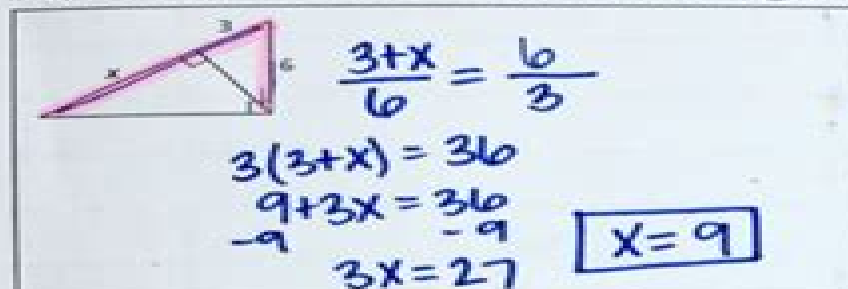 3
x
6
3+x/6 = 6/3
3(3+x) = 36
9+3x = 36
-9 -9
3x = 27
x = 9